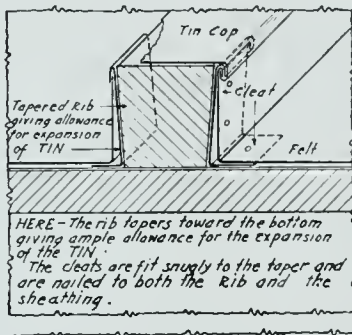 Tin Cap
Cleat
Tapered Rib
giving allowance
for expansion
of TIN
Felt
HERE - The rib tapers toward the bottom
giving ample allowance for the expansion
of the TIN.
The cleats are fit snugly to the taper and
are nailed to both the Rib and the
sheathing.